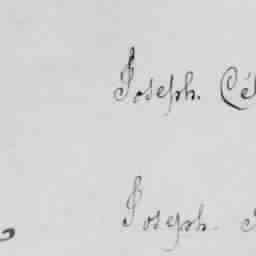 Joseph. Cé
Joseph.